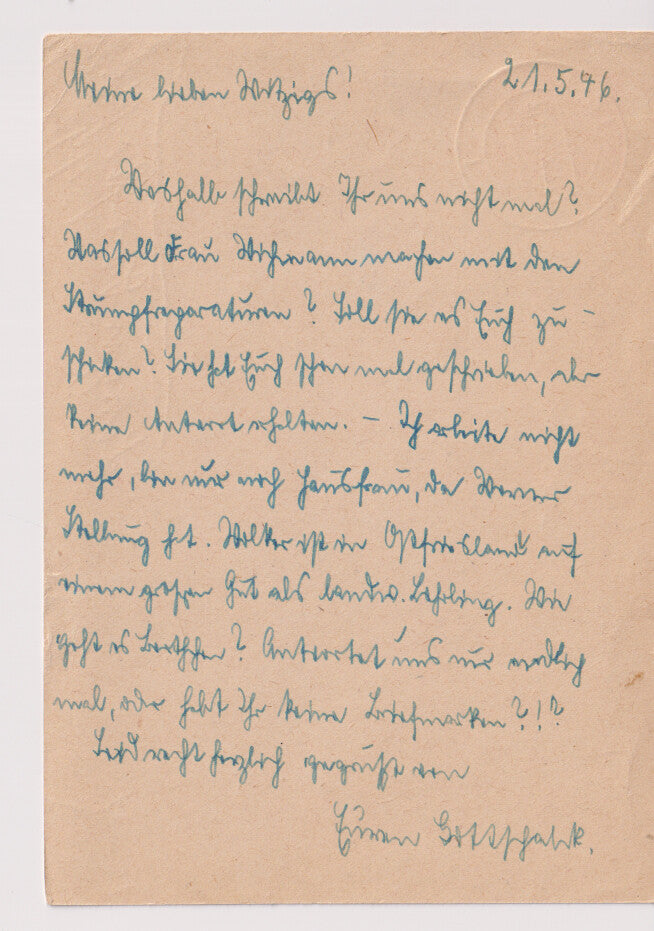 Meine lieben Witzigs! 21.5.46.
Weshalb schreibt Ihr uns nicht mal?
Was soll Frau Wichmann machen mit den
Strumpfreparaturen? Soll sie es Euch zu-
schicken? Sie hat Euch schon mal geschrieben, aber
keine Antwort erhalten. – Ich arbeite nicht
mehr, bin nur noch Hausfrau, da Werner
Stellung hat. Volker ist in Ostfriesland auf
einem großen Gut als landw. Lehrling. Wie
geht es Berthchen? Antwortet uns nur endlich
mal, oder habt Ihr keine Briefmarken?!?
Seid recht herzlich gegrüßt von
Euren Gottschalk.